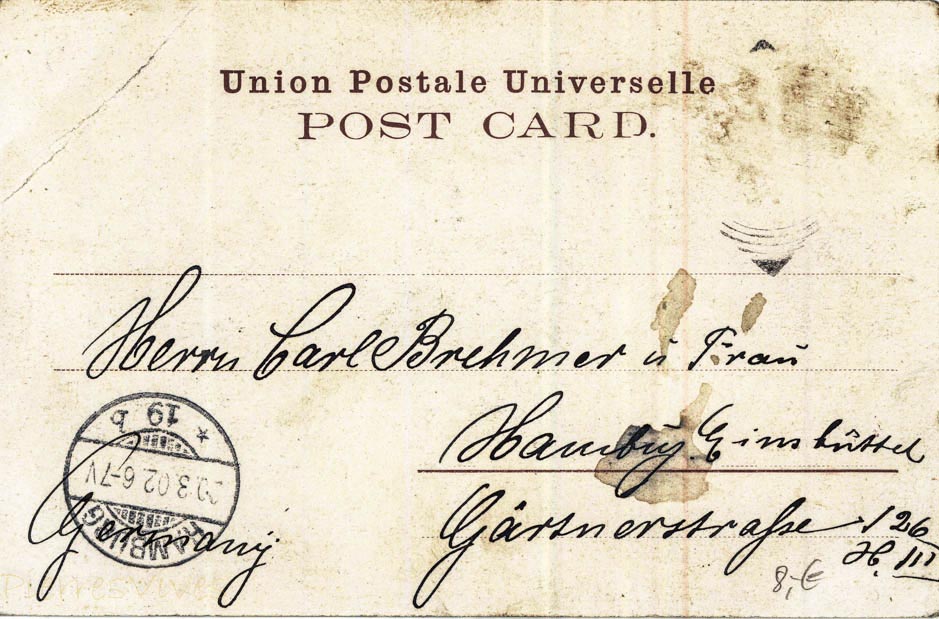 Union Postale Universelle
POST CARD.
Herrn Carl Brehmer u Frau
Hamburg. Eimsbüttel
Gärtnerstraße 126
H. III
Germany
* 19 b
.3.02.6-7V
HAMBURG
8,-€
pierresvives